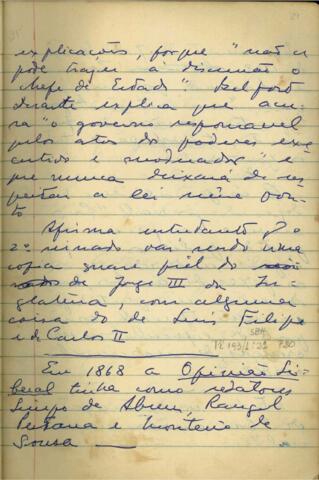 explicações, porque "não se
pode trazer á discussão o
chefe de Estado". Belfort
Duarte explica que acu-
sa "o governo responsavel
pelos actos dos poderes exe-
cutivo e moderador" e
que nunca deixará de res-
peitar a lei nesse pon-
to
Afirma entretanto q. o
2º reinado vai sendo uma
copia quase fiel do
de Jorge III da In-
glaterra, com alguma
coisa do de Luis Filipe
e de Carlos II
Em 1868 a Opinião Li-
beral tinha como redatores
Limpo de Abreu, Rangel
Pestana e Monteiro de
Sousa —